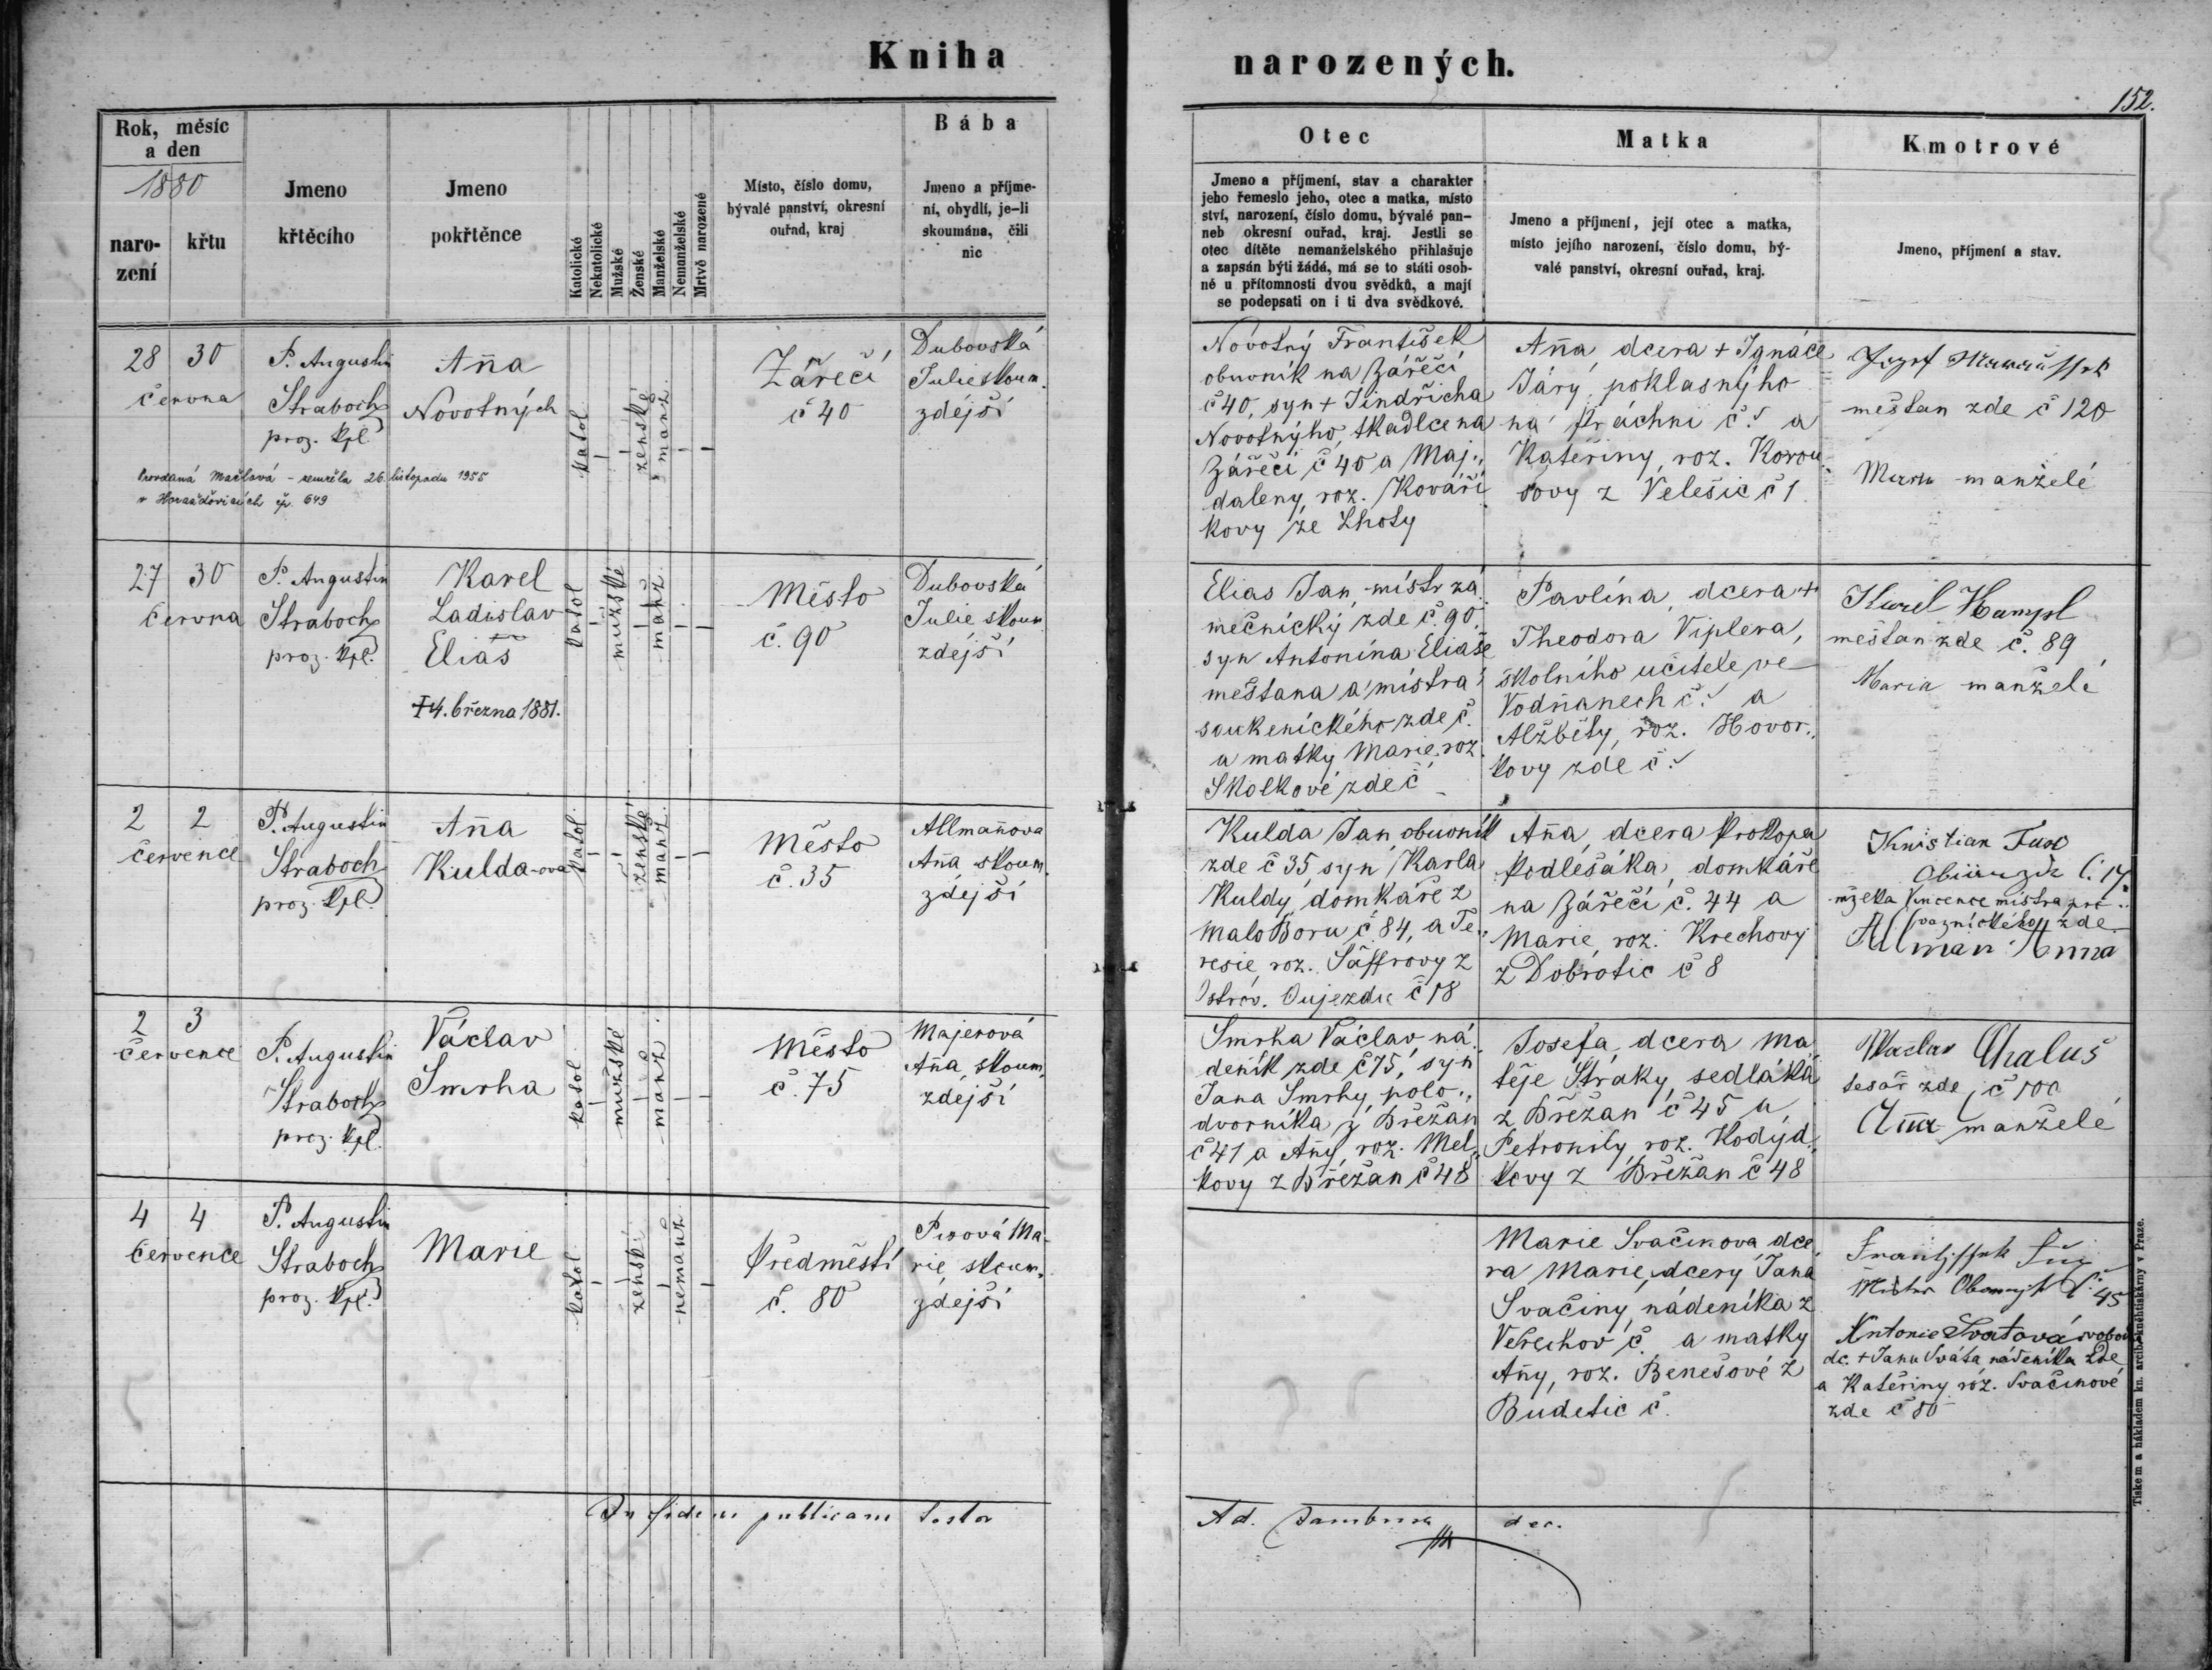 Kniha narozených.
152.
Rok, měsíc
a den
1880
naro-
zení
křtu
Jmeno
křtěcího
Jmeno
pokřtěnce
Katolické
Nekatolické
Mužské
Ženské
Manželské
Nemanželské
Mrtvě narozené
Místo, číslo domu,
bývalé panství, okresní
ouřad, kraj
Bába
Jmeno a příjme-
ní, obydlí, je-li
skoumána, čili
nic
Otec
Jmeno a příjmení, stav a charakter
jeho řemeslo jeho, otec a matka, místo
ství, narození, číslo domu, bývalé pan-
neb okresní ouřad, kraj. Jestli se
otec dítěte nemanželského přihlašuje
a zapsán býti žádá, má se to státi osob-
ně u přítomnosti dvou svědků, a mají
se podepsati on i ti dva svědkové.
Matka
Jmeno a příjmení, její otec a matka,
místo jejího narození, číslo domu, bý-
valé panství, okresní ouřad, kraj.
Kmotrové
Jmeno, příjmení a stav.
28 30
června
P. Augustin
Straboch
proz. kpl.
Ana
Novotných
katol.
ženské
manž.
Zářečí
č 40
Dubovská
Julie skoum.
zdejší
Novotný František
obuvník na Zářečí
č 40, syn + Jindřicha
Novotnýho, tkadlce na
Zářečí č 40 a Maj„
daleny, roz. Kováří
kovy ze Lhoty
Ana, dcera + Ignáce
Járy, poklasnýho
na Práchni č. a
Kateřiny, roz.
sovy z Velešic č 1
Josef
mešťan zde č 120
manželé
Provdaná Mačlová - zemřela 26. listopadu 1955
v Horažďovicích čp. 649
27 30
června
P. Augustin
Straboch
proz. kpl.
Karel
Ladislav
Eliáš
†4. března 1881.
katol
mužské
manž.
Město
č. 90
Dubovská
Julie skoum.
zdejší
Elias Jan, mistr zá
mečnický zde č. 90,
syn Antonína Eliaše
mešťana a mistra
soukenického zde č.
a matky Marie, roz.
Skolkové zde č
Pavlína, dcera +
Theodora Viplera,
školního učitele ve
Vodňanech č. a
Alžběty, roz. Hovor„
kovy zde č.
Karel Hampl
mešťan zde č. 89
Maria manželé
2 2
července
P. Augustin
Straboch
proz. kpl.
Ana
Kulda-ova
katol.
ženské
manž.
Město
č. 35
Allmanova
Ana skoum.
zdejší
Kulda Jan, obuvník
zde č 35 syn Karla
Kuldy, domkáře z
malo Boru č 84, a Te„
resie, roz. Šaffrovy z
Ostrov. Oujezdu č 18
Ana, dcera Prokopa
Podlešáka, domkáře
na Zářečí č. 44 a
Marie, roz. Krechovy
z Dobrotic č 8
Kristian Fux
mželka Vincence mistra pro„
vaznického zde
Allman Anna
2 3
července
P. Augustin
Straboch
proz. kpl.
Václav
Smrha
katol.
mužské
manž.
Město
č. 75
Majerová
Ana, skoum.
zdejší
Smrha Václav, ná
deník zde č 75, syn
Jana Smrhy, polo„
dvorníka z Břežan
č 41 a Any, roz. Mel„
kovy z Břežan č 48
Josefa, dcera Ma
těje Straky, sedláka
z Břežan č 45 a
Petronily, roz. Kodýd„
kovy z Břežan č 48
Waclav Chaluš
tesař zde, č 100
Ana manželé
4 4
července
P. Augustin
Straboch
proz. kpl.
Marie
katol.
ženské
nemanž.
Předměstí
č. 80
Pixová Ma-
rie skoum.
zdejší
Marie Svačinova dce
ra Marie, dcery Jana
Svačiny, nádeníka z
Veřechov č. a matky
Any, roz. Benešové z
Budetic č.
Frantissek
č. 45
Antonie Svatová svobod
dc. + Jana Sváta, nádeníka zde
a Kateřiny roz. Svačinové
zde č 80
In fidem publicam testor
Ad. Jambura dec.
Tiskem a nákladem kn. arcib. knihtiskárny v Praze.